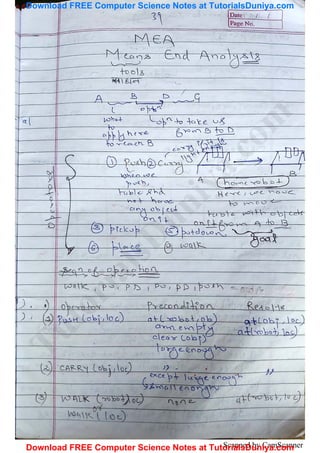 Download FREE Computer Science Notes at TutorialsDuniya.com
39
Date: / /
Page No.
MEA
Means End Analysis
tools
A B D G
optn
what optn to take us
to from B to D
apply here
to reach B
① Push ② Carry
when we
push,
table shd
not have
any object
on it
A B
(home robot)
Here, we have
to move
table with objects
on it from A to B
Goal
Operators
③ pickup ⑤ putdown
⑥ place walk
Seqn of operation
walk, PU, PD, PU, PD, push
operator Precondition Results
(1) Push (obj, loc) at(robot, ob) at(obj, loc)
arm empty at(robot, loc)
clear (obj)
large enough
(2) CARRY (obj, loc) " "
except large enough
small enough
(3) WALK (robot, loc) none at(robot, loc)
or
walk (loc)
Download FREE Computer Science Notes at TutorialsDuniya.com
Scanned by CamScanner